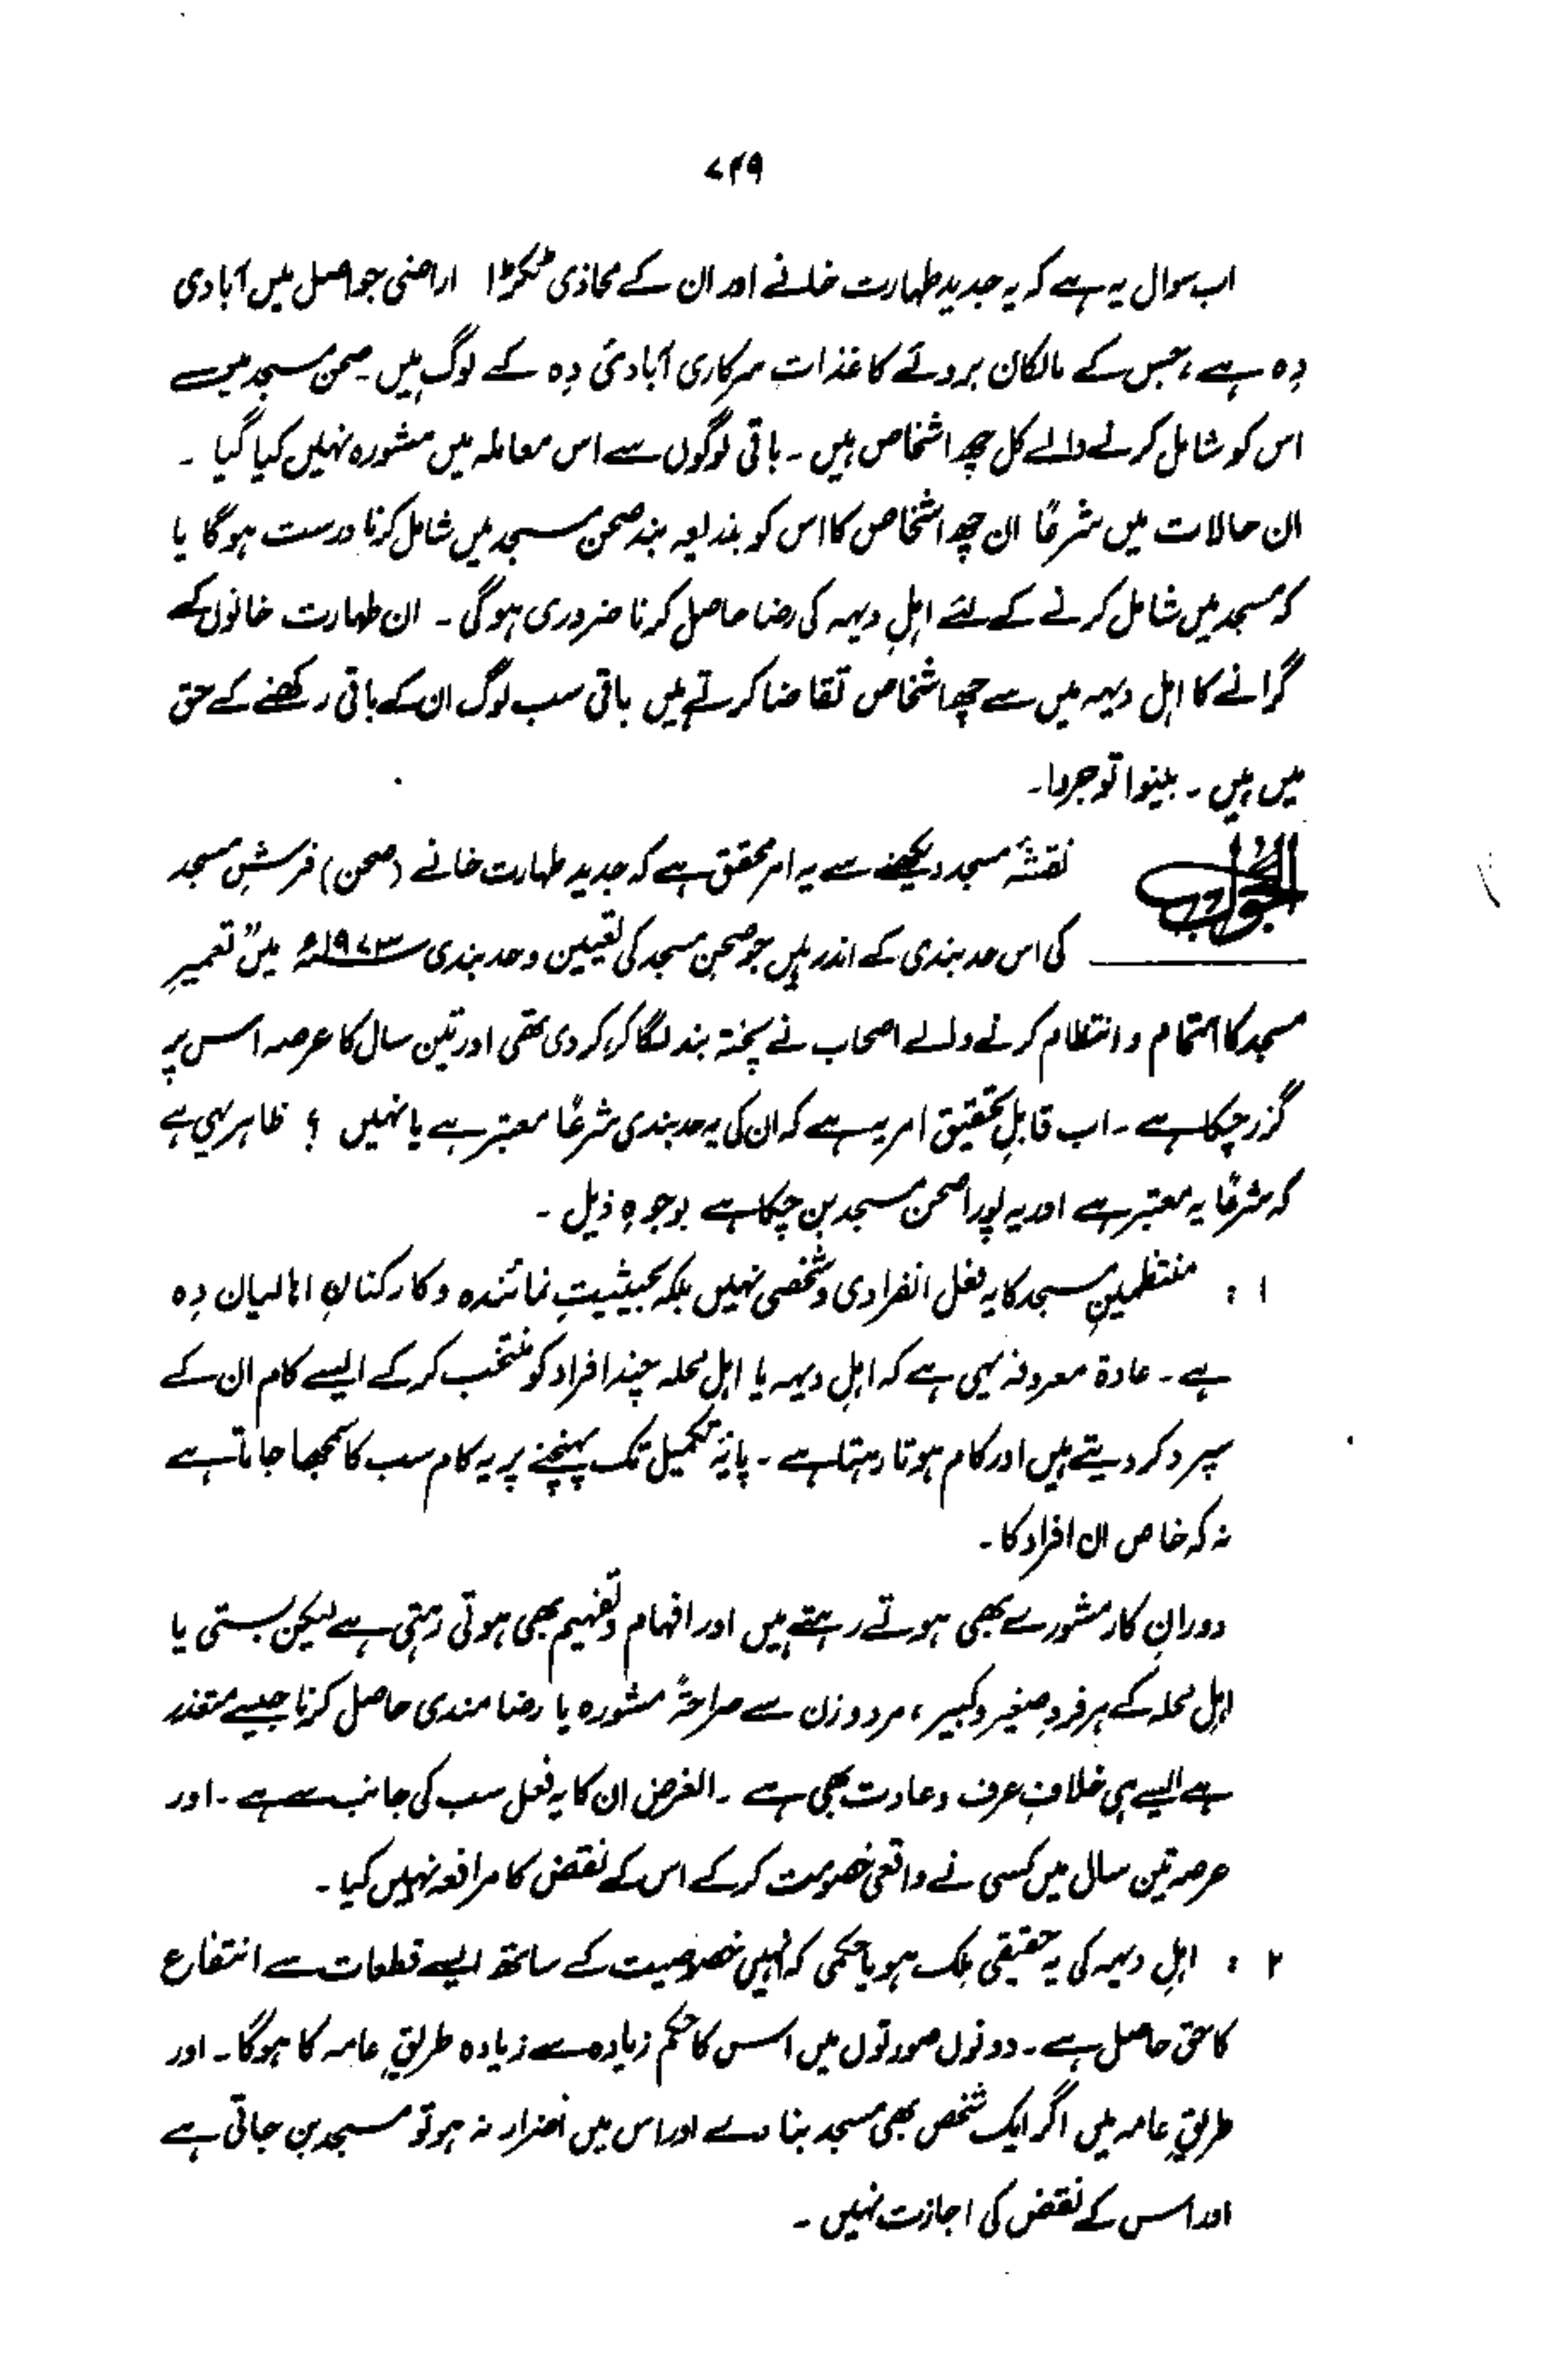 ۷۴۹
اب سوال یہ ہے کہ یہ جدید طہارت خانے اور ان کے محاذی ٹکڑا اراضی جو اصل میں آبادی
دِہ ہے ، جس کے مالکان بروئے کاغذات سرکاری آبادئ دِہ کے لوگ ہیں ۔ صحن مسجد میں سے
اس کو شامل کرنے والے کل چھ اشخاص ہیں ۔ باقی لوگوں سے اس معاملہ میں مشورہ نہیں کیا گیا ۔
ان حالات میں شرعًا ان چھ اشخاص کا اس کو بذریعہ بند صحن مسجد میں شامل کرنا درست ہوگا یا
کہ مسجد میں شامل کرنے کے لئے اہلِ دیہہ کی رضا حاصل کرنا ضروری ہوگی ۔ ان طہارت خانوں کے
گرانے کا اہل دیہہ میں سے چھ اشخاص تقاضا کرتے ہیں باقی سب لوگ ان کے باقی رکھنے کے حق
میں ہیں ۔ بینوا توجروا۔
الجواب
نقشۂ مسجد دیکھنے سے یہ امر محقق ہے کہ جدید طہارت خانے (صحن) فرشِ مسجد
کی اس حد بندی کے اندر ہیں جو صحنِ مسجد کی تعیین و حد بندی ۱۹۷۳ء میں" تعمیرِ
مسجد کا اہتمام و انتظام کرنے والے اصحاب نے پختہ بند لگا کر کر دی تھی اور تین سال کا عرصہ اس پر
گزر چکا ہے ۔ اب قابلِ تحقیق امر یہ ہے کہ ان کی یہ حد بندی شرعًا معتبر ہے یا نہیں ؟ ظاہر یہی ہے
کہ شرعًا یہ معتبر ہے اور یہ پورا صحن مسجد بن چکا ہے بوجوہِ ذیل ۔
۱ : منتظمینِ مسجد کا یہ فعل انفرادی و شخصی نہیں بلکہ بحیثیتِ نمائندہ و کارکنانِ اہالیان دِہ
ہے ۔ عادۃ معروفہ یہی ہے کہ اہلِ دیہہ یا اہلِ محلہ چند افراد کو منتخب کرکے ایسے کام ان کے
سپرد کر دیتے ہیں اور کام ہوتا رہتا ہے ۔ پایۂ تکمیل تک پہنچنے پر یہ کام سب کا سمجھا جاتا ہے
نہ کہ خاص ان افراد کا ۔
دورانِ کار مشورے بھی ہوتے رہتے ہیں اور افہام و تفہیم بھی ہوتی رہتی ہے لیکن بستی یا
اہلِ محلہ کے ہر فرد صغیر و کبیر ، مرد و زن سے صراحۃً مشورہ یا رضا مندی حاصل کرنا جیسے متعذر
ہے ایسے ہی خلافِ عرف و عادت بھی ہے ۔ الغرض ان کا یہ فعل سب کی جانب سے ہے ۔ اور
عرصہ تین سال میں کسی نے واقعی خصومت کرکے اس کے نقض کا مرافعہ نہیں کیا ۔
۲ : اہلِ دیہہ کی یہ حقیقی ملک ہو یا حکمی کہ انہیں خصوصیت کے ساتھ ایسے قطعات سے انتفاع
کا حق حاصل ہے ۔ دونوں صورتوں میں اس کا حکم زیادہ سے زیادہ طریقِ عامہ کا ہوگا ۔ اور
طریقِ عامہ میں اگر ایک شخص بھی مسجد بنا دے اور اس میں اضرار نہ ہو تو مسجد بن جاتی ہے
اور اس کے نقض کی اجازت نہیں ۔